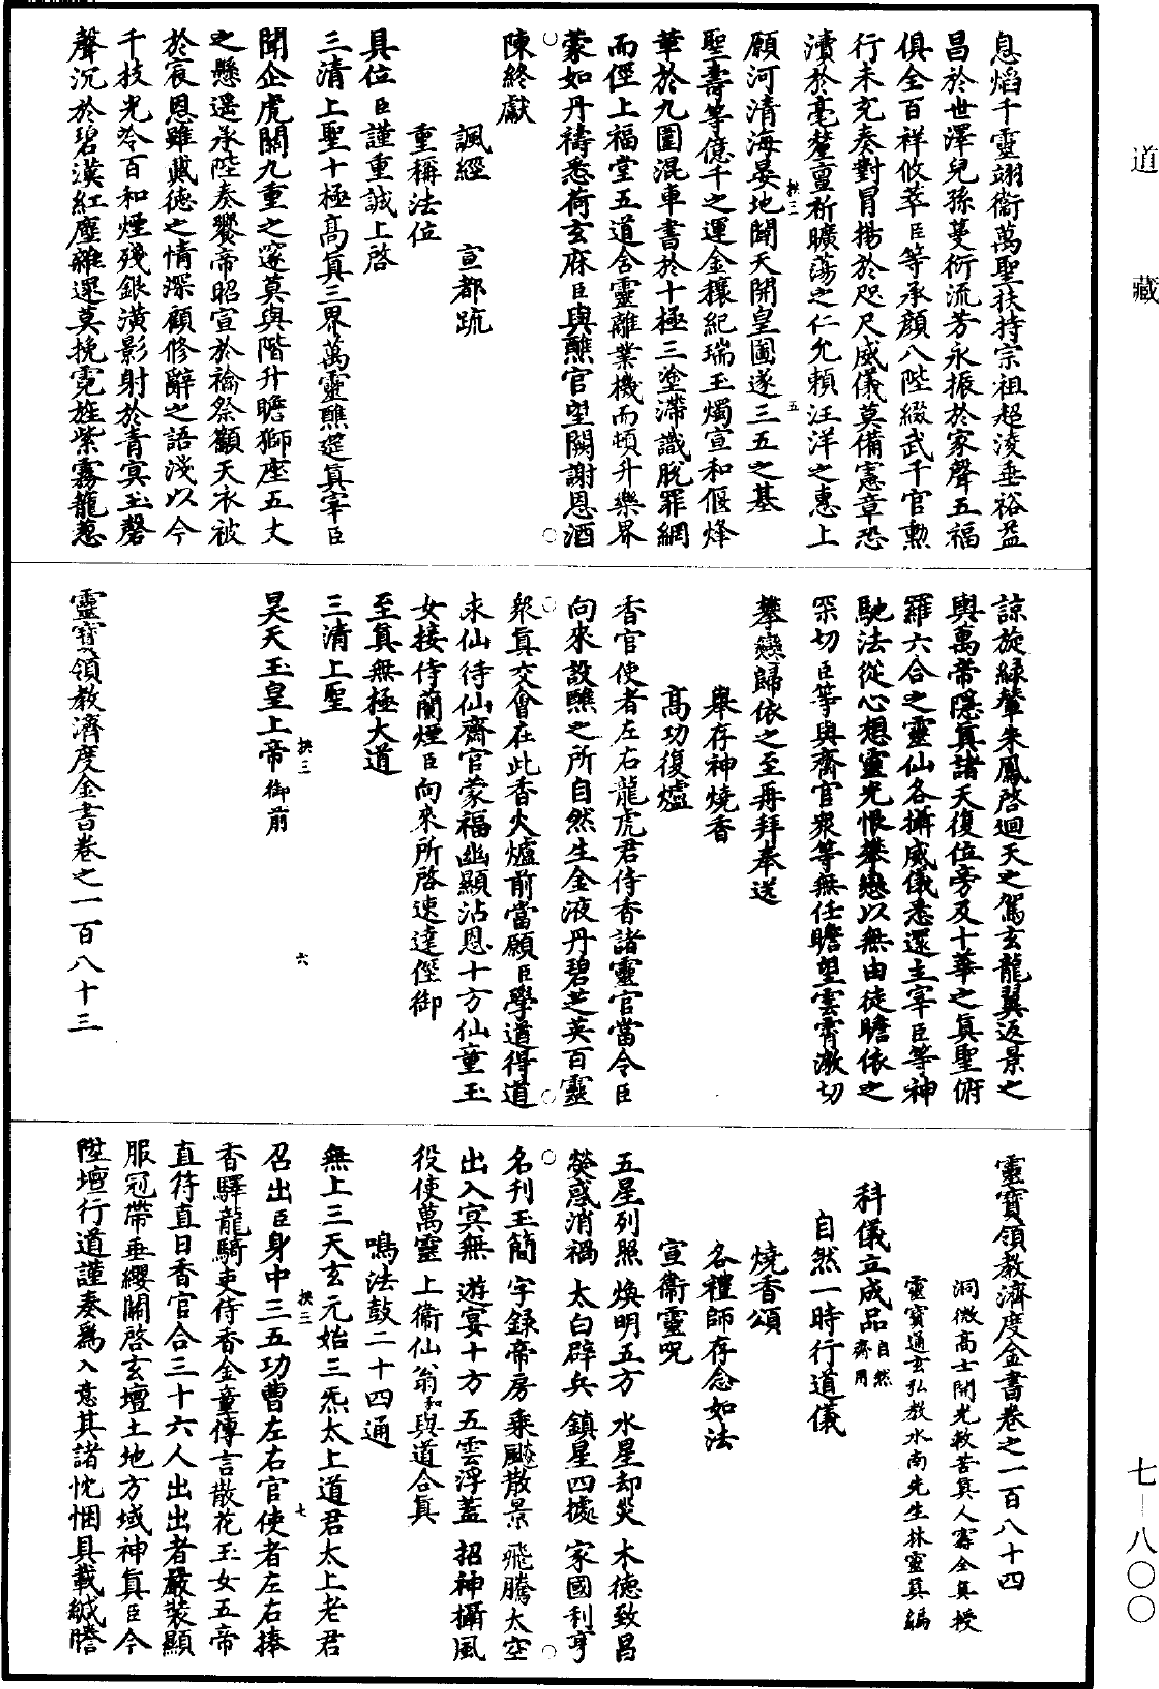 道藏
息焰千靈翊衞萬聖扶持宗祖超淩垂裕益
昌於世澤兒孫蔓衍流芳永振於家聲五福
俱全百祥攸萃臣等承顔八陛綴武千官勲
行未充奏對冒揚於咫尺威儀莫備憲章恐
瀆於毫釐亶祈曠蕩之仁允賴汪洋之惠上
願河清海晏地闢天開皇圖遂三五之基
聖壽等億千之運金穰紀瑞玉燭宣和偃烽
華於九圍混車書於十極三塗滯識脫罪網
而俓上福堂五道含靈離業機而頓升樂界
蒙如丹禱悉荷玄庥臣與醮官望闕謝恩酒
陳終獻
諷經 宣都疏
重稱法位
具位臣謹重誠上啓
三清上聖十極高真三界萬靈醮筵真宰臣
聞企虎關九重之邃莫與階升瞻獅座五丈
之懸遥承陛奏饗帝昭宣於禴祭籲天永被
於宸恩雖戴德之情深顧修辭之語淺以今
千枝光冷百和煙殘銀潢影射於青冥玉磬
聲沉於碧漢紅塵雜遝莫挽霓旌紫霧龍葱
諒旋緑輦朱鳳啓迴天之駕玄龍翼返景之
輿萬帝隱真諸天復位旁及十華之真聖俯
羅六合之靈仙各攝威儀悉還主宰臣等神
馳法從心想靈光恨攀戀以無由徒瞻依之
罙切臣等與齊官衆等無任瞻望雲霄激切
攀戀歸依之至再拜奉送
舉存神燒香
高功復爐
香官使者左右龍虎君侍香諸靈官當令臣
向來設醮之所自然生金液丹碧芝英百靈
衆真交會在此香火爐前當願臣學道得道
求仙待仙齋官蒙福幽顯沾恩十方仙童玉
女接侍蘭煙臣向來所啓速達俓御
至真無極大道
三清上聖
昊天玉皇上帝御前
靈寶領教濟度金書卷之一百八十三
靈寶領教濟度金書卷之一百八十四
洞微高士開光救苦真人寗全真授
靈寶通玄弘教水南先生林靈真編
科儀立成品自然齋用
自然一時行道儀
燒香頌
各禮師存念如法
宣衞靈呪
五星列照 煥明五方 水星却災 木德致昌
熒惑消禍 太白辟兵 鎮星四據 家國利亨
名刊玉簡 字録帝房 乘飈散景 飛騰太空
出入冥無 遊宴十方 五雲浮蓋 招神攝風
役使萬靈 上衞仙翁和與道合真
鳴法鼓二十四通
無上三天玄元始三炁太上道君太上老君
召出臣身中三五功曹左右官使者左右捧
香驛龍騎吏侍香金童傳言散花玉女五帝
直符直日香官合三十六人出出者嚴裝顯
服冠帶垂纓關啓玄壇土地方域神真臣今
陞壇行道謹奏爲入意其諸忱悃具載緘謄
挾三
五
挾三
六
挾三
七
七—八〇〇